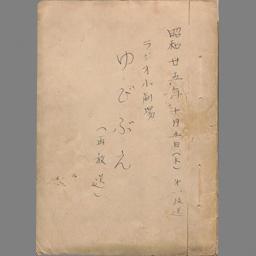 昭和廿五年十月五日(木)第一放送
ラジオ小劇場
ゆびぶえ
(再放送)